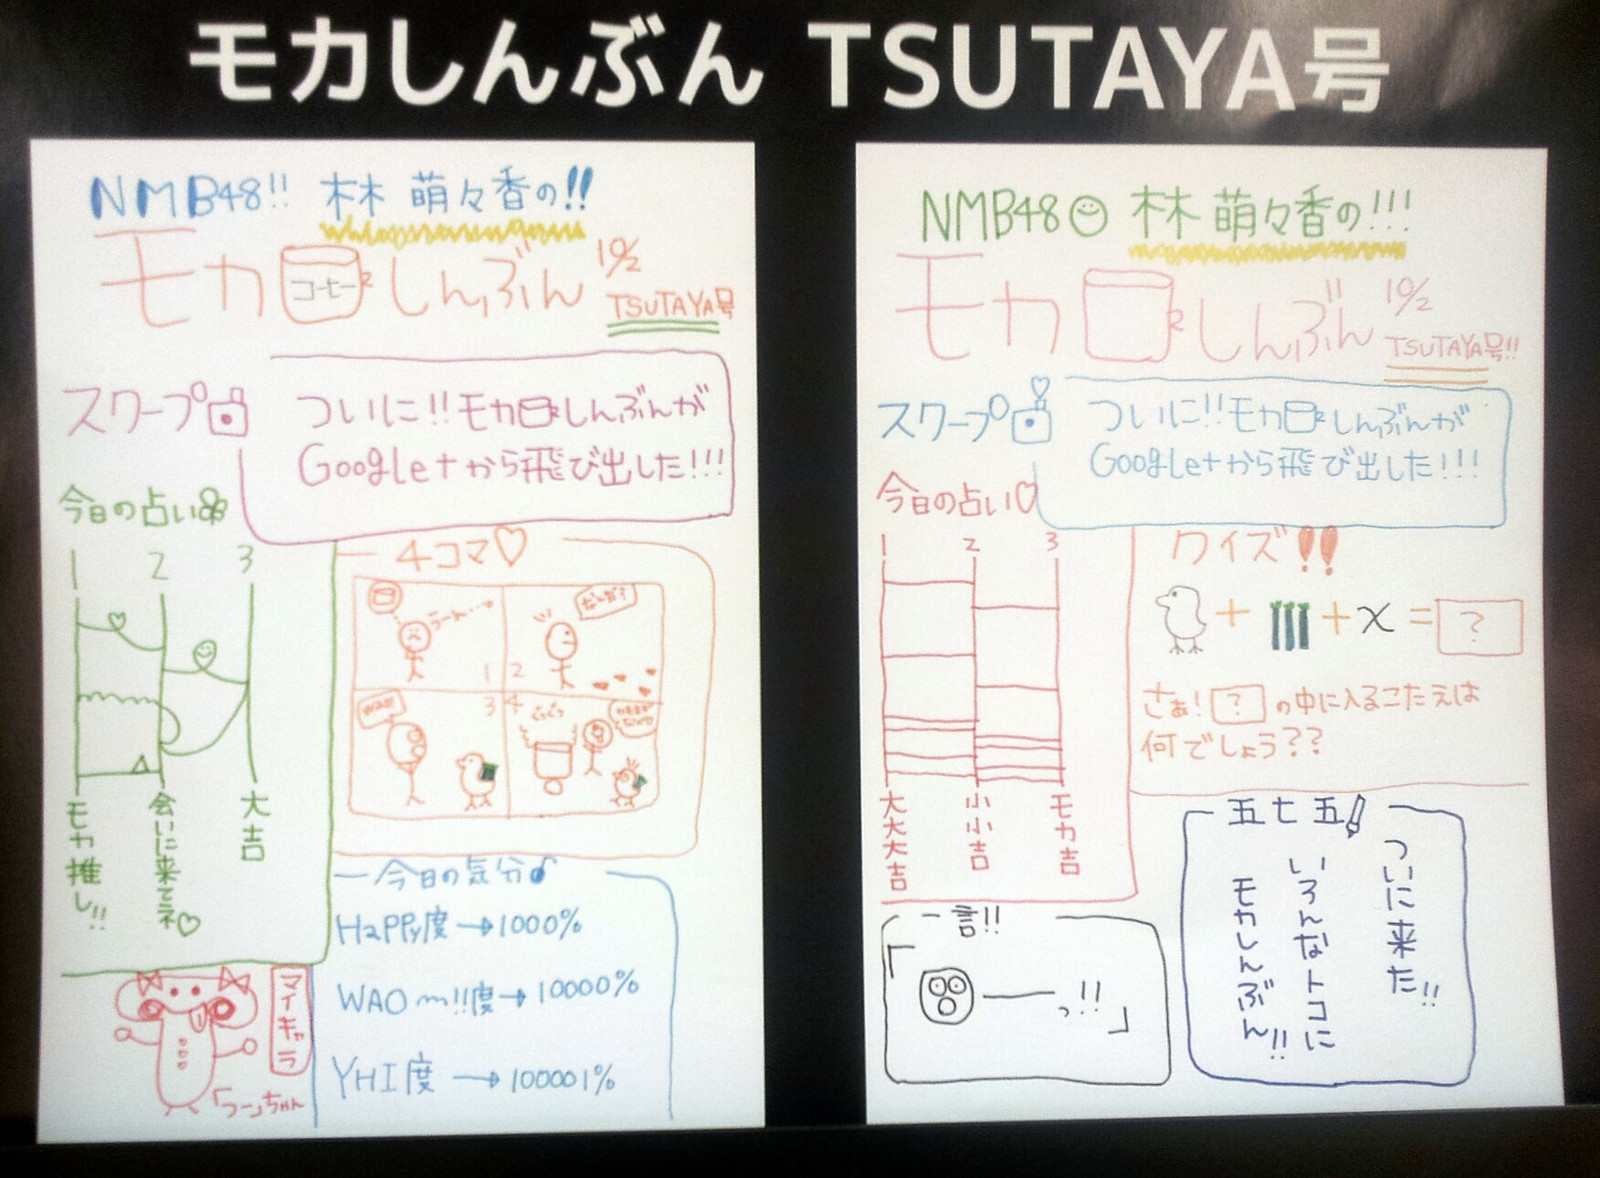 モカしんぶん TSUTAYA号
NMB48!! 林 萌々香の!!
モカ コーヒー しんぶん 10/2
TSUTAYA号
スクープ
ついに!!モカしんぶんが
Google+から飛び出した!!!
今日の占い
1 2 3
モカ推し!!
会いに来てネ♡
大吉
4コマ♡
うーん…
1
なんだ?
2
3
4
今日の気分♪
HaPPy度→1000%
WAO〜!!度→10000%
YHI度→100001%
マイキャラ
「つー」ちゃん
NMB48 林 萌々香の!!!
モカ しんぶん 10/2
TSUTAYA号!!
スクープ
ついに!!モカしんぶんが
Google+から飛び出した!!!
今日の占い♡
1 2 3
大大大吉
小小吉
モカ吉
クイズ!!
+ + x = ?
さぁ! ? の中に入るこたえは
何でしょう??
一言!!
「 ――っ!!」
五七五
ついに来た!!
いろんなトコに
モカしんぶん!!